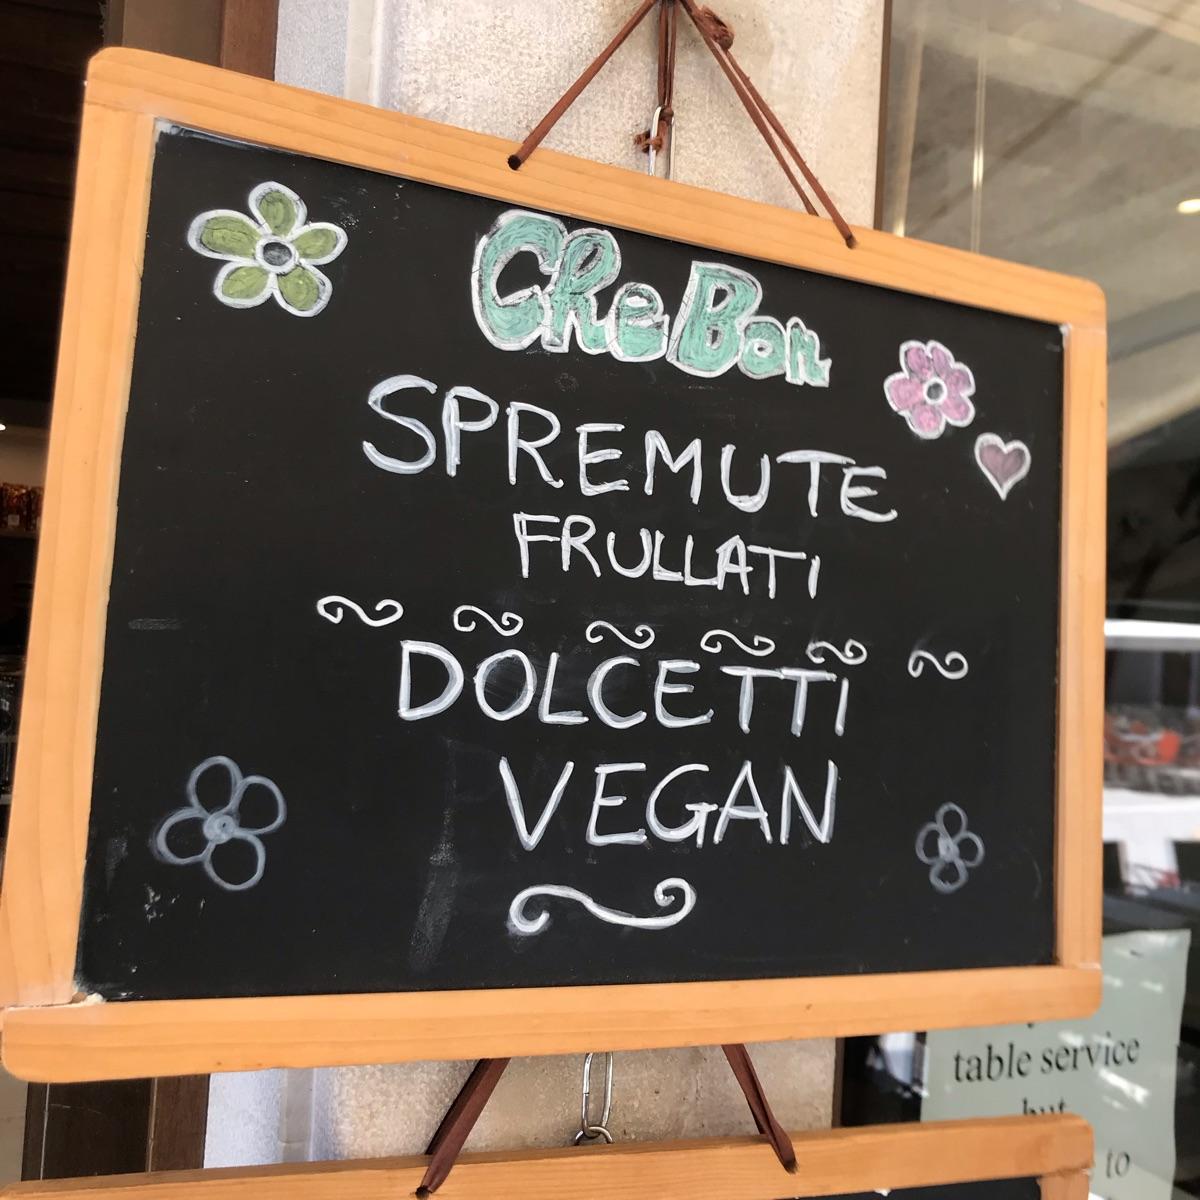 Che Bon
SPREMUTE
FRULLATI
DOLCETTI
VEGAN
table service
but
to